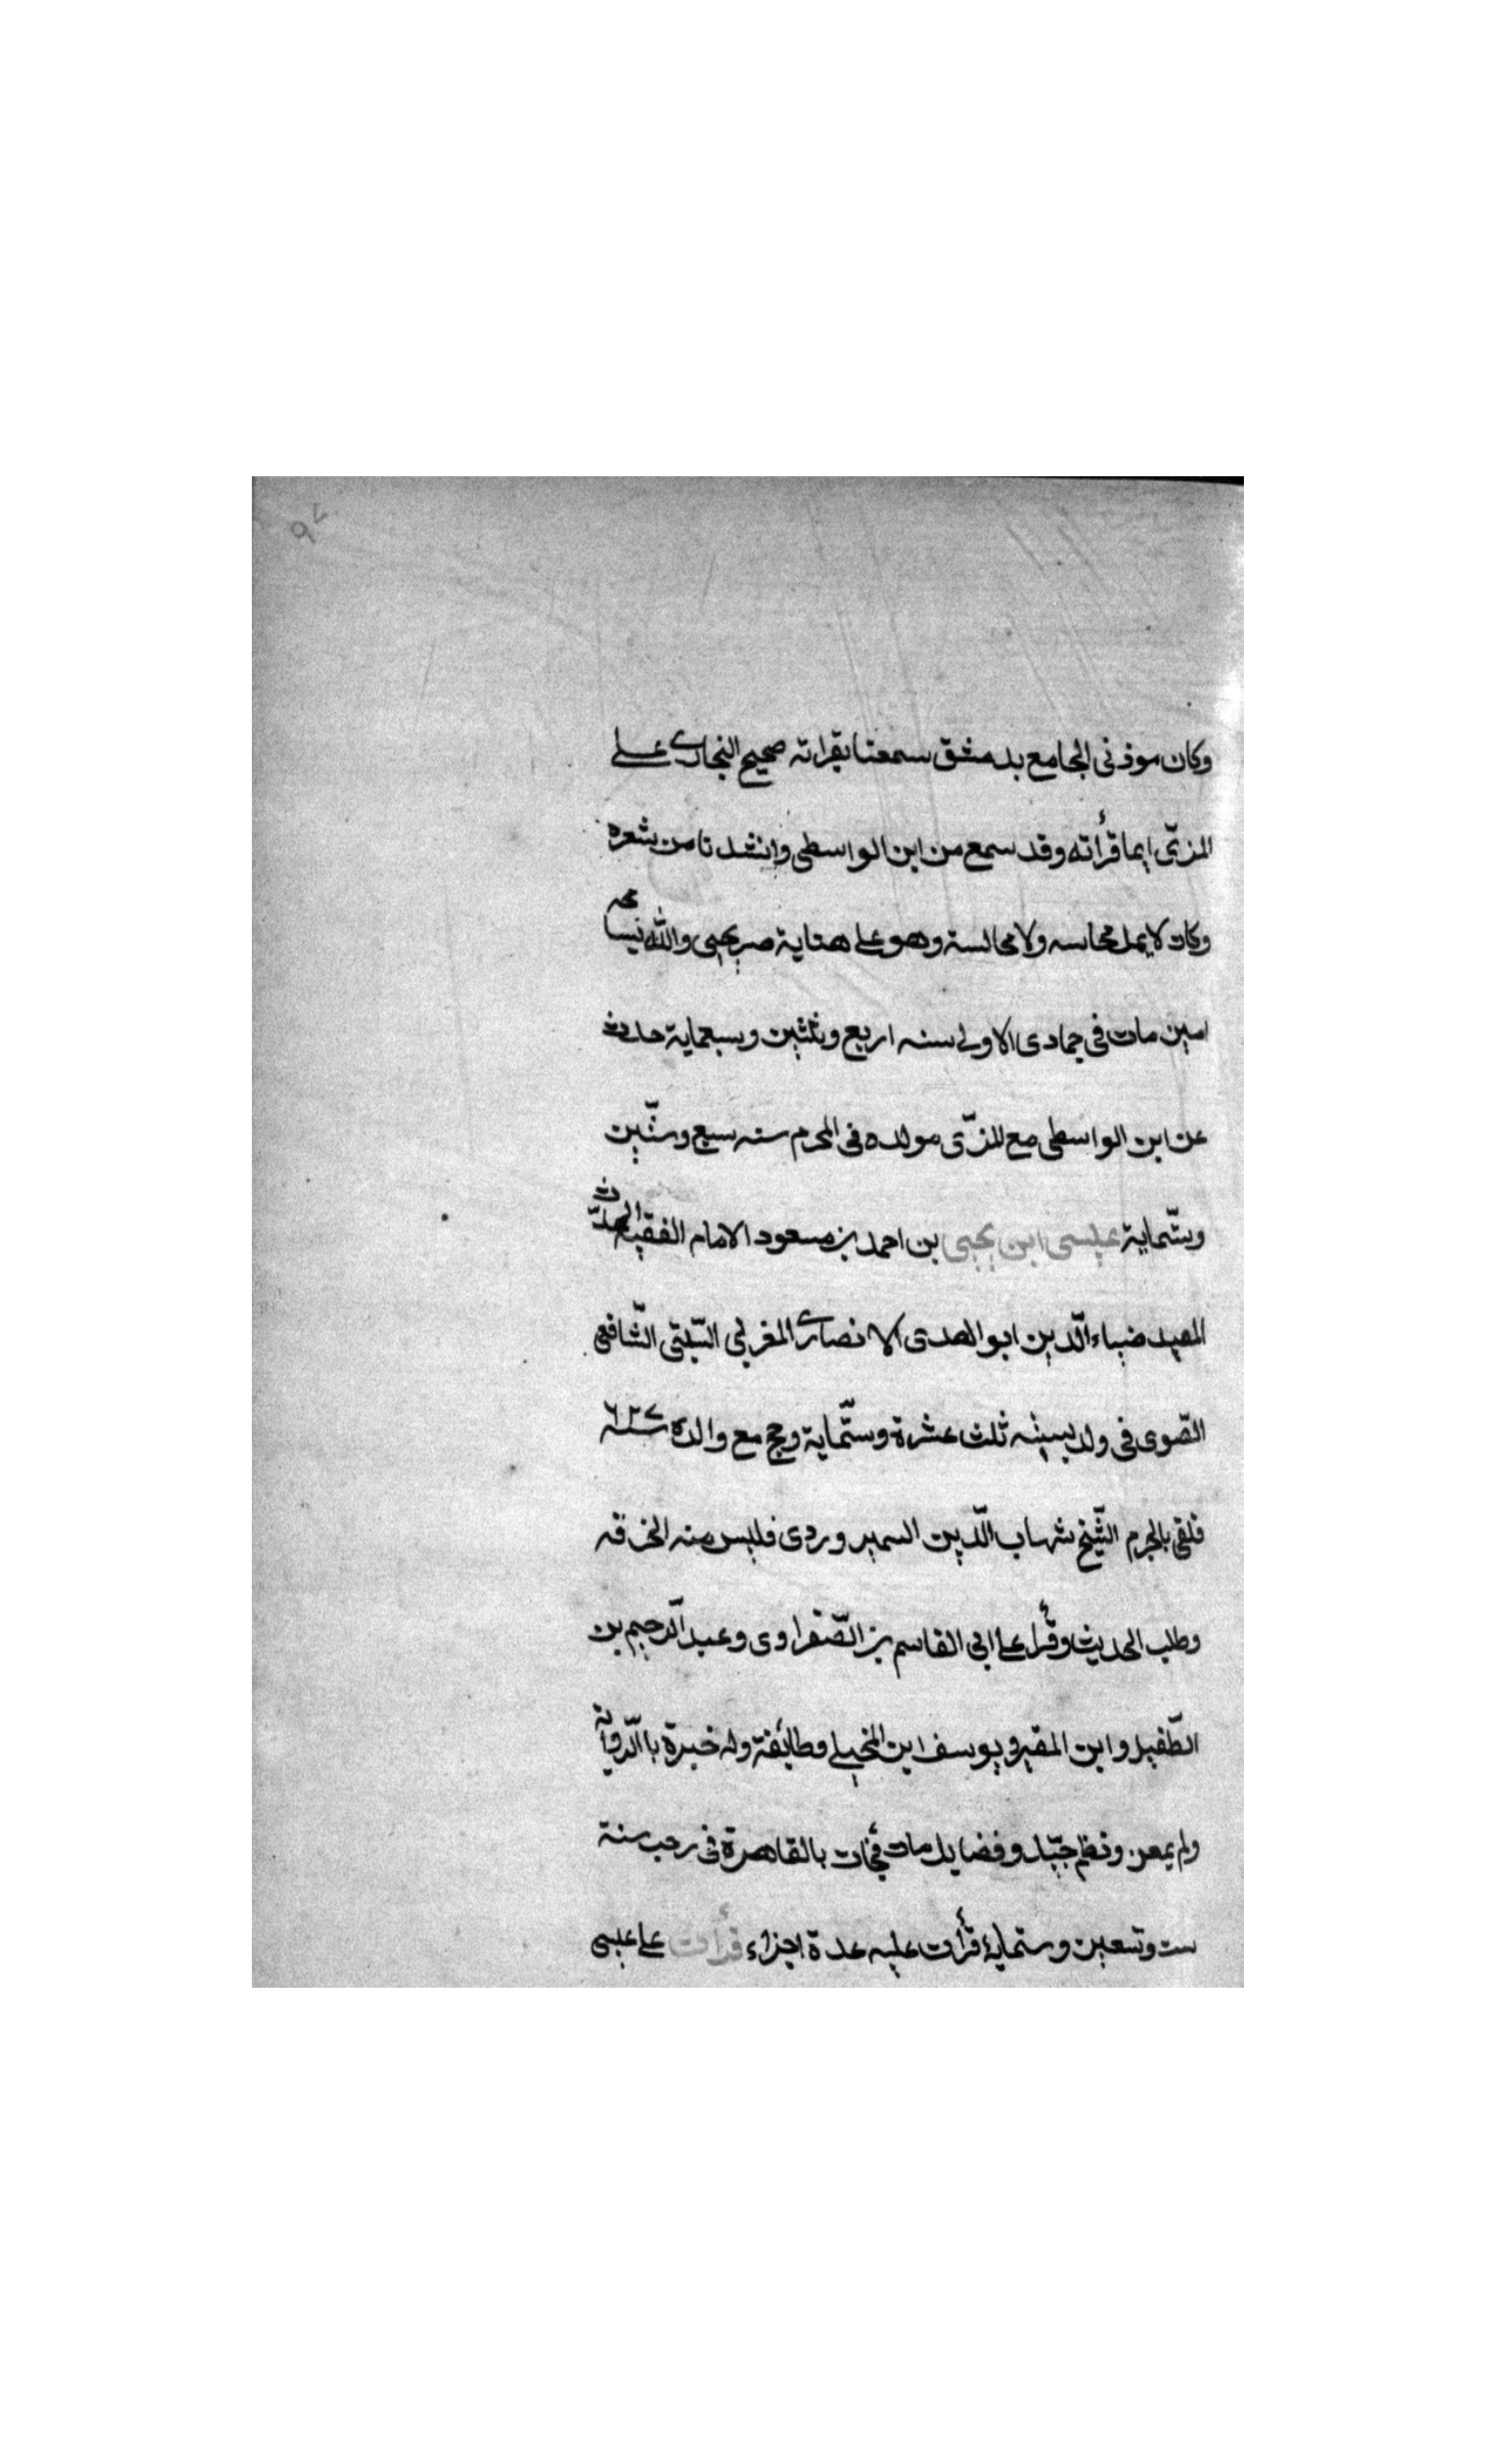 ٩٧
وكان موذنى الجامع بدمشق سمعنا بقراته صحيح البخارى على
المزّى ايما قرأته وقد سمع من ابن الواسطى وانشدنا من شعره
وكان لا يمل محاسه ولا مجالسة وهو على هناية والله
امين مات فى جمادى الاولى سنه اربع وثلثين وسبعماية حادث
عن ابن الواسطى مع المزّى مولده فى المحرم سنه سبع وستّين
وستّماية عيسى ابن يحيى بن احمد بن مسعود الامام الفقيه المحدّث
المعيد ضياء الّدين ابو الهدى الانصارى المغربى السّبتى الشّافعى
الصّوى فى ولد بسبته ثلث عشرة وستّماية وحج مع والده سنه ٦٢٧
فلقى بالحرم الشّيخ شهاب الّدين السهروردى فلبس منه الخرقه
وطلب الحديث وقرأ على ابى القاسم بن الصّفراوى وعبد الّرحيم بن
الطّفيل وابن المقير ويوسف ابن المخيلى وطائفة وله خبرة بالّرواية
ولم يمعن ونظم جيّد وفضايل مات بالقاهرة فى رجب سنة
ست وتسعين وستماية قرأت عليه عدة اجزاء قرأت على عيسى